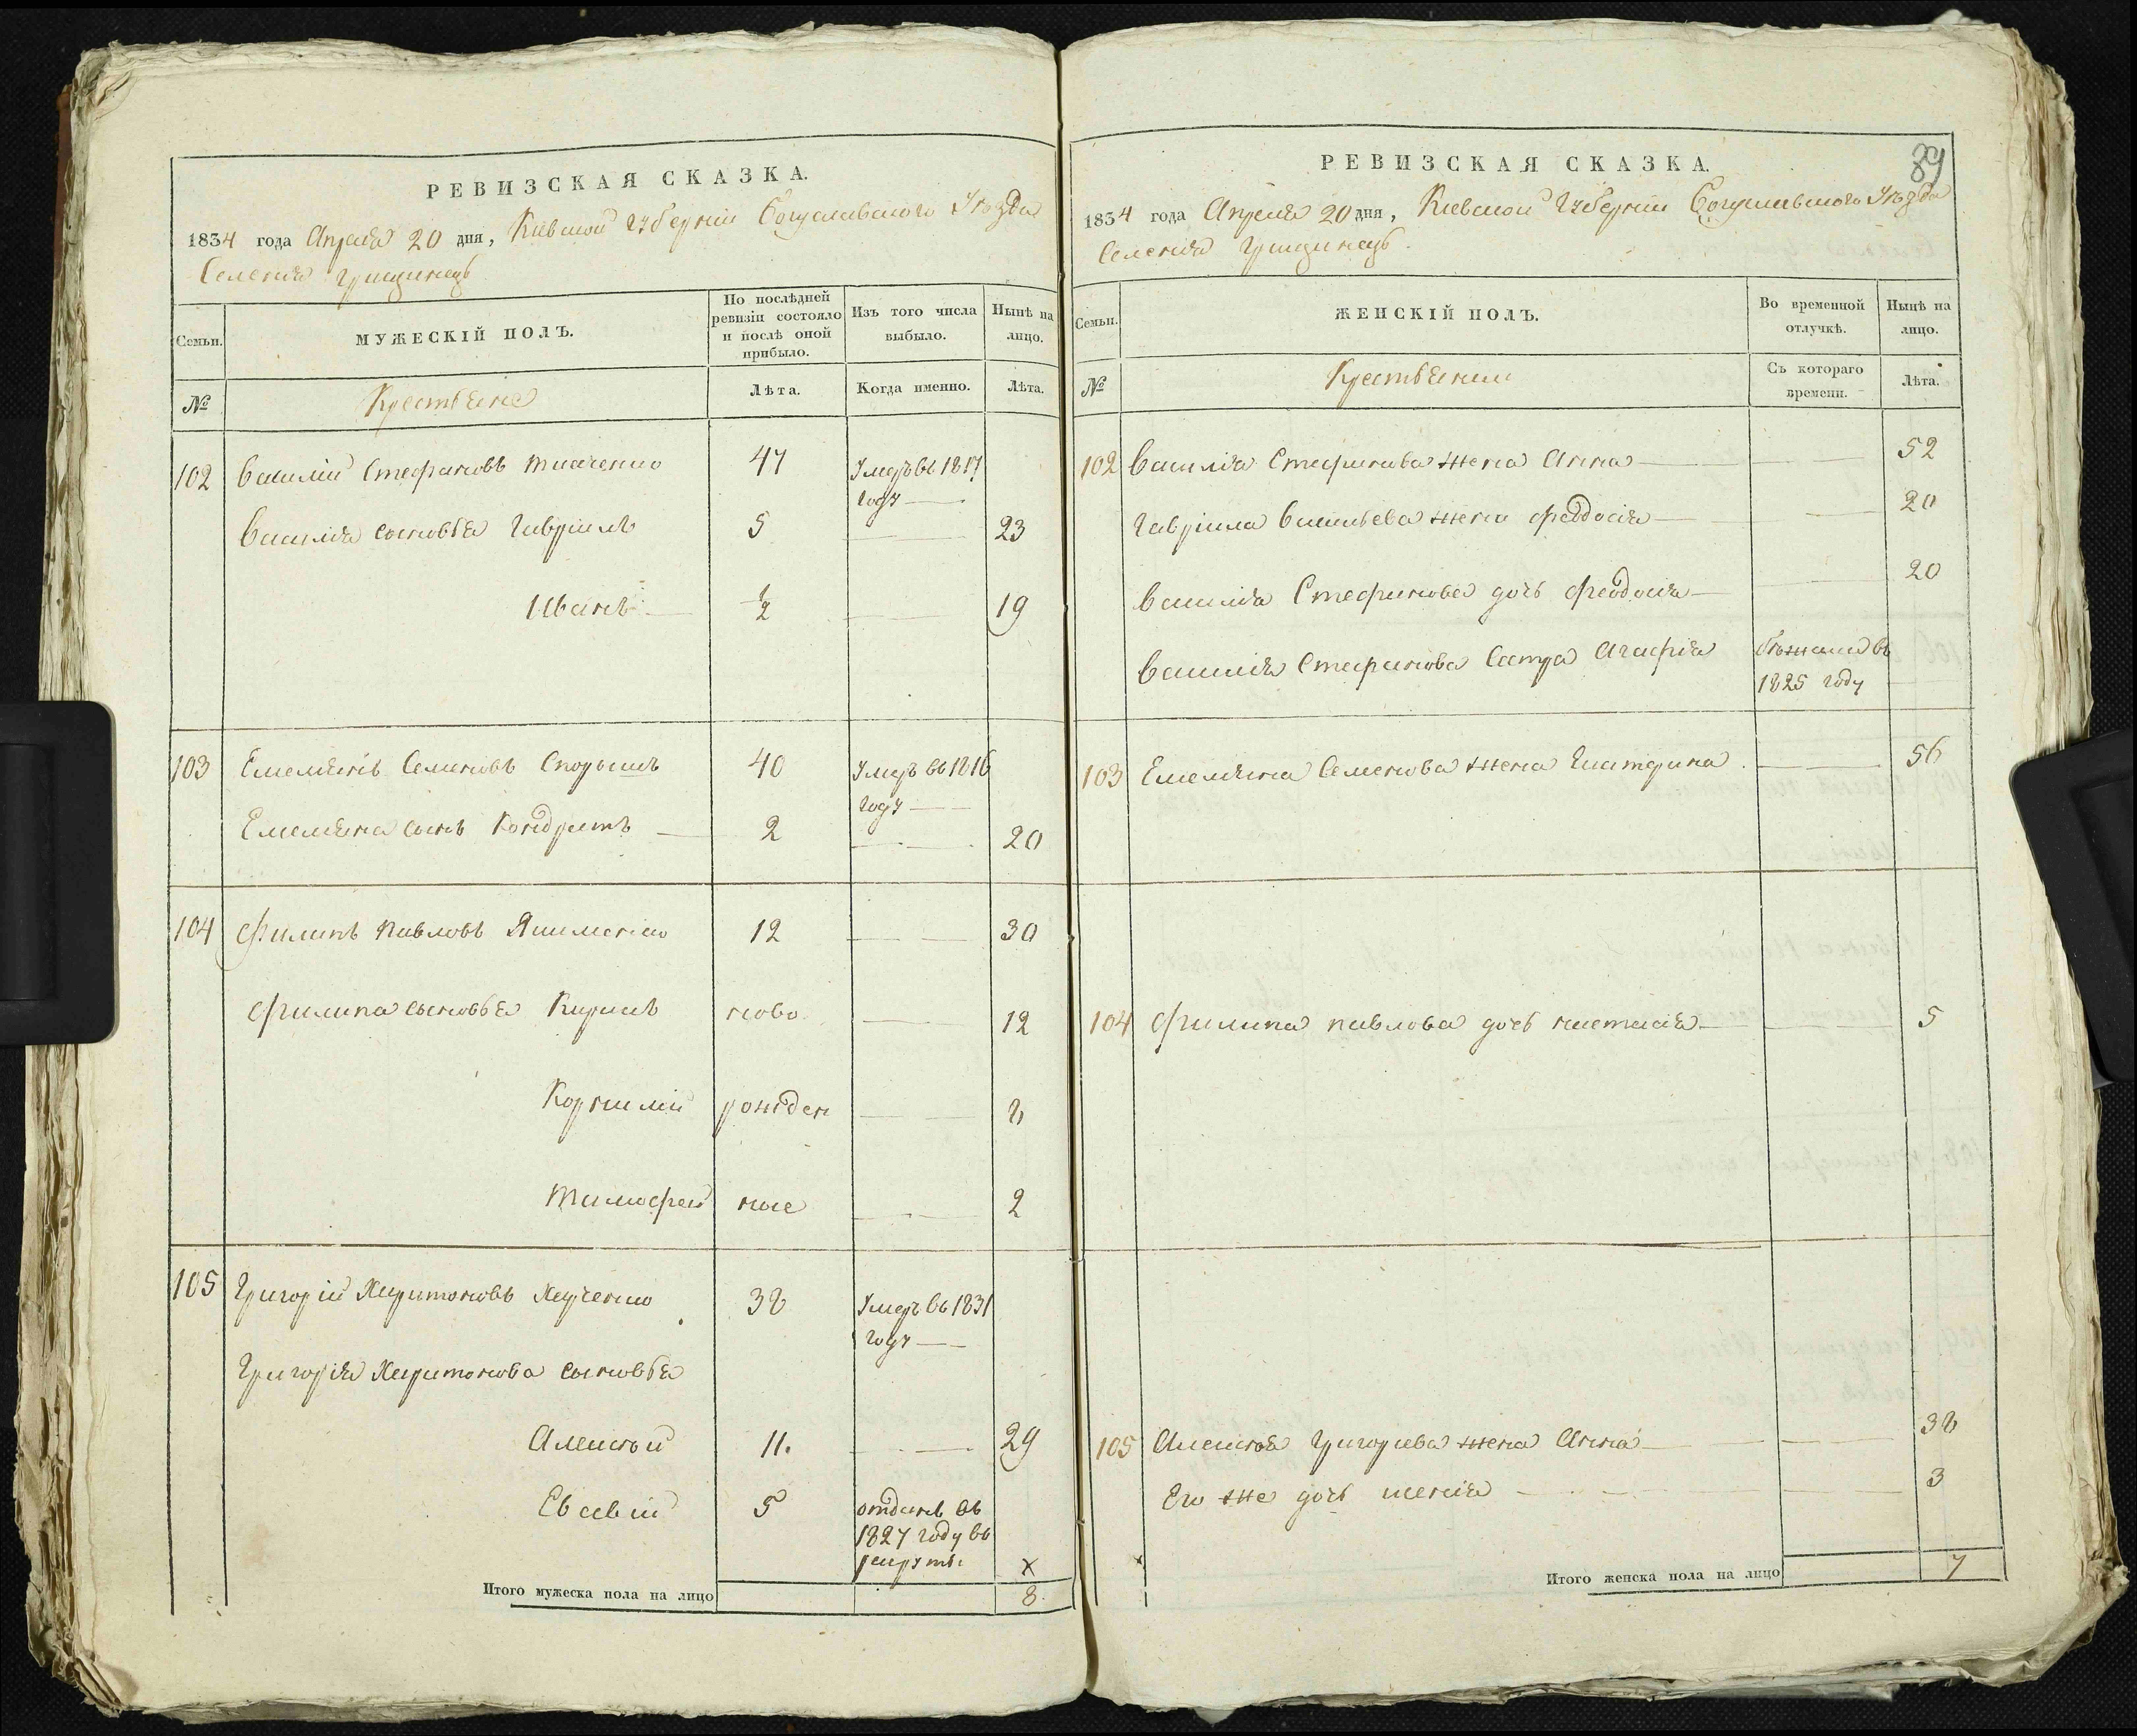 РЕВИЗСКАЯ СКАЗКА.
1834 года Апреля 20 дня, Кіевской Губерніи Богуславского Уѣзда
Селенія Грищинецъ
Семьи.
МУЖЕСКІЙ ПОЛЪ.
По послѣдней ревизіи состояло и послѣ оной прибыло.
Изъ того числа выбыло.
Нынѣ на лицо.
№
Крестьяне
Лѣта.
Когда именно.
Лѣта.
102 Василій Стефановъ Ткаченко 47 Умеръ въ 1817
году
Василія сыновья Гавріилъ 5 23
Иванъ ½ 19
103 Емельянъ Семеновъ Скорыкъ 40 Умеръ въ 1816
году
Емельяна сынъ Кондратъ 2 20
104 Филипъ Павловъ Якименко 12 30
Филипа сыновья Кирилъ ново 12
Корнилій рожден 8
Тимофей ные 2
105 Григорій Харитоновъ 38 Умеръ въ 1831
году
Григорія Харитонова сыновья
Алексѣй 11. 29
Евсевій 5 отданъ въ
1827 году въ
рекруты х
Итого мужеска пола на лицо 8.
89
РЕВИЗСКАЯ СКАЗКА.
1834 года Апреля 20 дня, Кіевской Губерніи Богуславского Уѣзда
Селенія Грищинецъ.
Семьи.
ЖЕНСКІЙ ПОЛЪ.
Во временной отлучкѣ.
Нынѣ на лицо.
№
Крестьянки
Съ котораго времени.
Лѣта.
102 Василія Стефанова жена Анна 52
Гавріила Васильева жена Феодосія 20
Василія Стефанова дочь Феодосія 20
Василія Стефанова Сестра Агафія бѣжала въ
1825 году
103 Емельяна Семенова жена Екатерина 56
104 Филипа Павлова дочь настасія 5
105 Алексѣя Григорьева жена Анна 38
Его же дочь ксенія 3
Итого женска пола на лицо 7